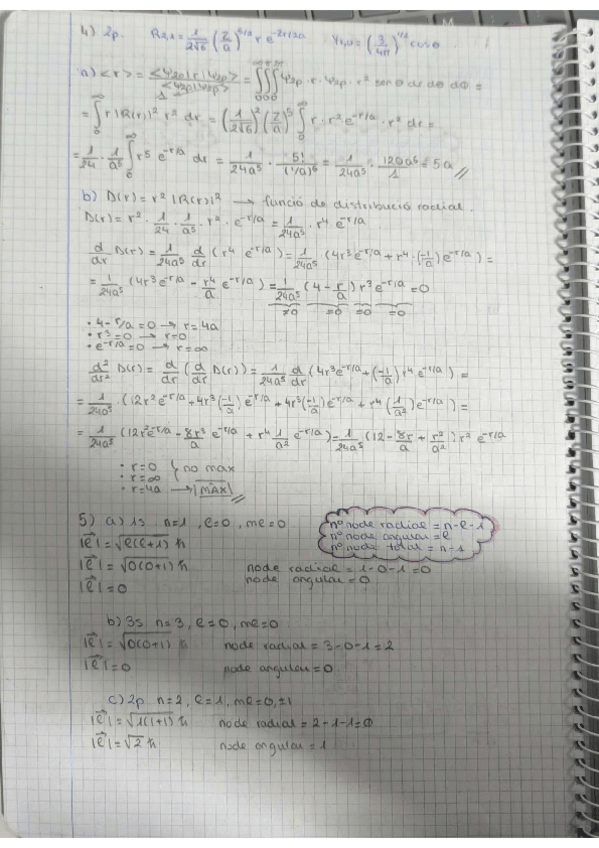 4) 2p. R₂,₁ = 1/(2√6) (Z/a)^(5/2) r e^(-Zr/2a) Y₁,₀ = (3/4π)^(1/2) cosθ
a) <r> = <Ψ2p|r|Ψ2p> / <Ψ2p|Ψ2p> = ∫∫∫ Ψ2p · r · Ψ2p · r² senθ dr dθ dΦ =
= ∫₀^∞ r |R(r)|² r² dr = (1/(2√6))² (Z/a)⁵ ∫₀^∞ r · r² e^(-r/a) · r² dr =
= 1/24 · 1/a⁵ ∫₀^∞ r⁵ e^(-r/a) dr = 1/(24a⁵) · 5!/(1/a)⁶ = 1/(24a⁵) · 120a⁶/1 = 5a //
b) D(r) = r² |R(r)|² → funció de distribució radial.
D(r) = r² · 1/24 · 1/a⁵ · r² · e^(-r/a) = 1/(24a⁵) · r⁴ e^(-r/a)
d/dr D(r) = 1/(24a⁵) d/dr (r⁴ e^(-r/a)) = 1/(24a⁵) (4r³ e^(-r/a) + r⁴ · (-1/a) e^(-r/a)) =
= 1/(24a⁵) (4r³ e^(-r/a) - r⁴/a e^(-r/a)) = 1/(24a⁵) (4 - r/a) r³ e^(-r/a) = 0
≠0 =0 =0 =0
• 4 - r/a = 0 → r = 4a
• r³ = 0 → r = 0
• e^(-r/a) = 0 → r = ∞
d²/dr² D(r) = d/dr (d/dr D(r)) = 1/(24a⁵) d/dr (4r³ e^(-r/a) + (-1/a) r⁴ e^(-r/a)) =
= 1/(24a⁵) · (12r² e^(-r/a) + 4r³ (-1/a) e^(-r/a) + 4r³ (-1/a) e^(-r/a) + r⁴ (1/a²) e^(-r/a)) =
= 1/(24a⁵) (12r² e^(-r/a) - 8r³/a e^(-r/a) + r⁴ 1/a² e^(-r/a)) = 1/(24a⁵) (12 - 8r/a + r²/a²) r² e^(-r/a)
• r = 0
• r = ∞ } no max
• r = 4a → MAX //
5) a) 1s n=1, ℓ=0, mℓ=0
nº node radial = n-ℓ-1
nº node angular = ℓ
nº node total = n-1
|ℓ⃗| = √(ℓ(ℓ+1)) ħ
|ℓ⃗| = √(0(0+1)) ħ node radial = 1-0-1=0
|ℓ⃗| = 0 node angular = 0
b) 3s n=3, ℓ=0, mℓ=0
|ℓ⃗| = √(0(0+1)) ħ node radial = 3-0-1=2
|ℓ⃗| = 0 node angular = 0
c) 2p n=2, ℓ=1, mℓ=0,±1
|ℓ⃗| = √(1(1+1)) ħ node radial = 2-1-1=0
|ℓ⃗| = √2 ħ node angular = 1